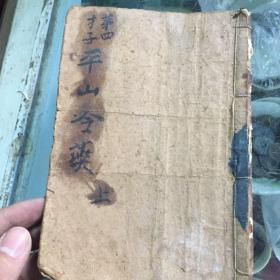 第四
才子
平山令燕
上